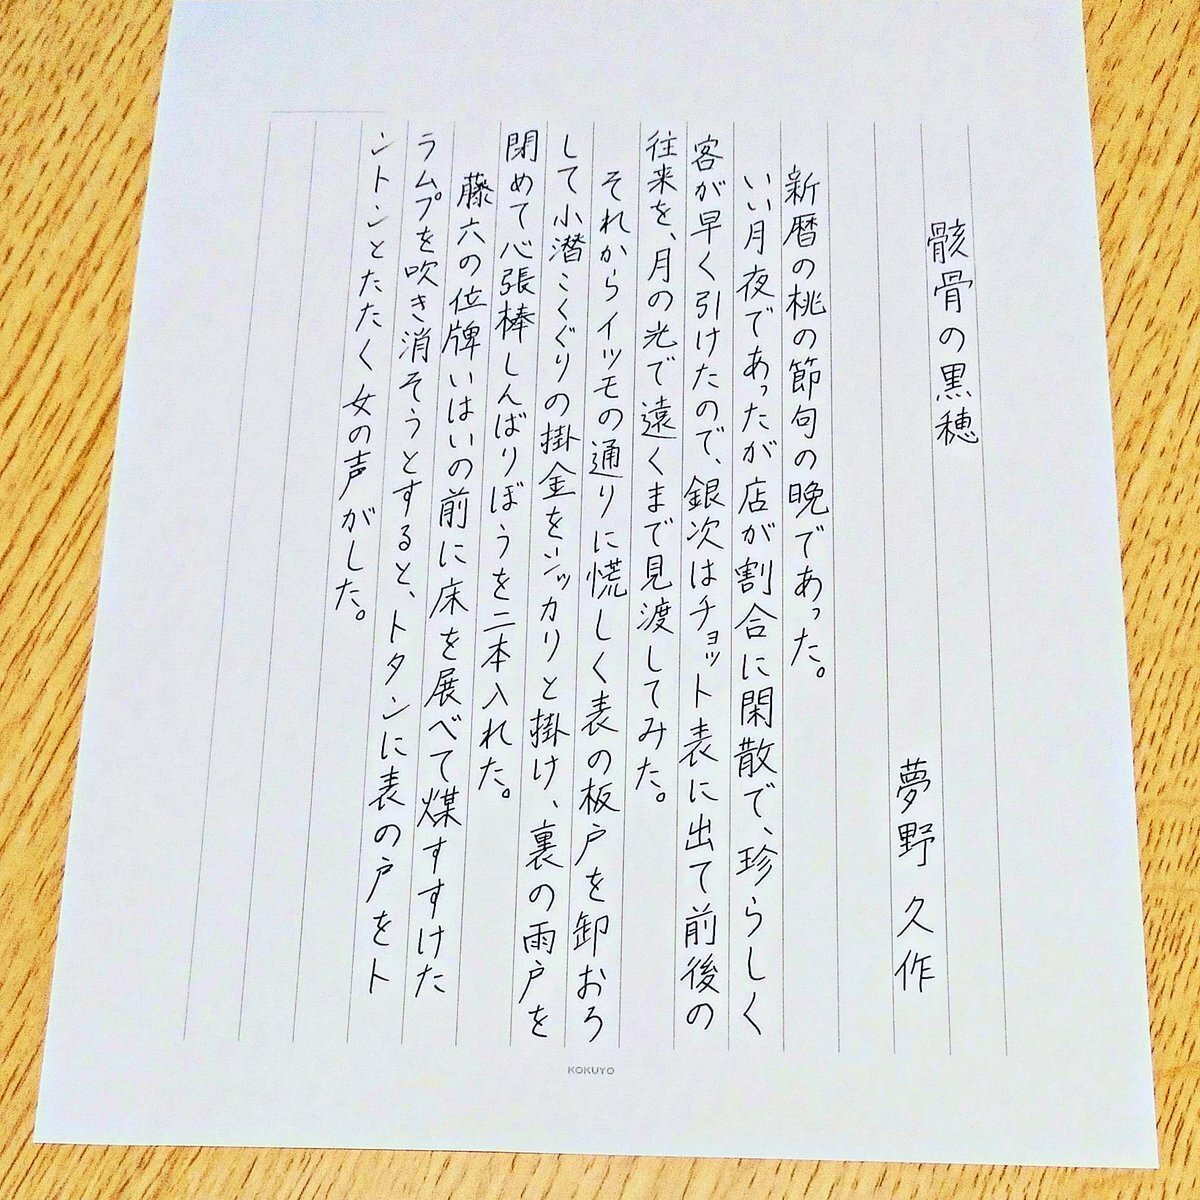 骸骨の黒穂
夢野久作
新暦の桃の節句の晩であった。
いい月夜であったが店が割合に閑散で、珍らしく
客が早く引けたので、銀次はチョット表に出て前後の
往来を、月の光で遠くまで見渡してみた。
それからイツモの通りに慌しく表の板戸を卸おろ
して小潜こくぐりの掛金をシッカリと掛け、裏の雨戸を
閉めて心張棒しんばりぼうを二本入れた。
藤六の位牌いはいの前に床を展べて煤すすけた
ラムプを吹き消そうとすると、トタンに表の戸をト
ントンとたたく女の声がした。
KOKUYO